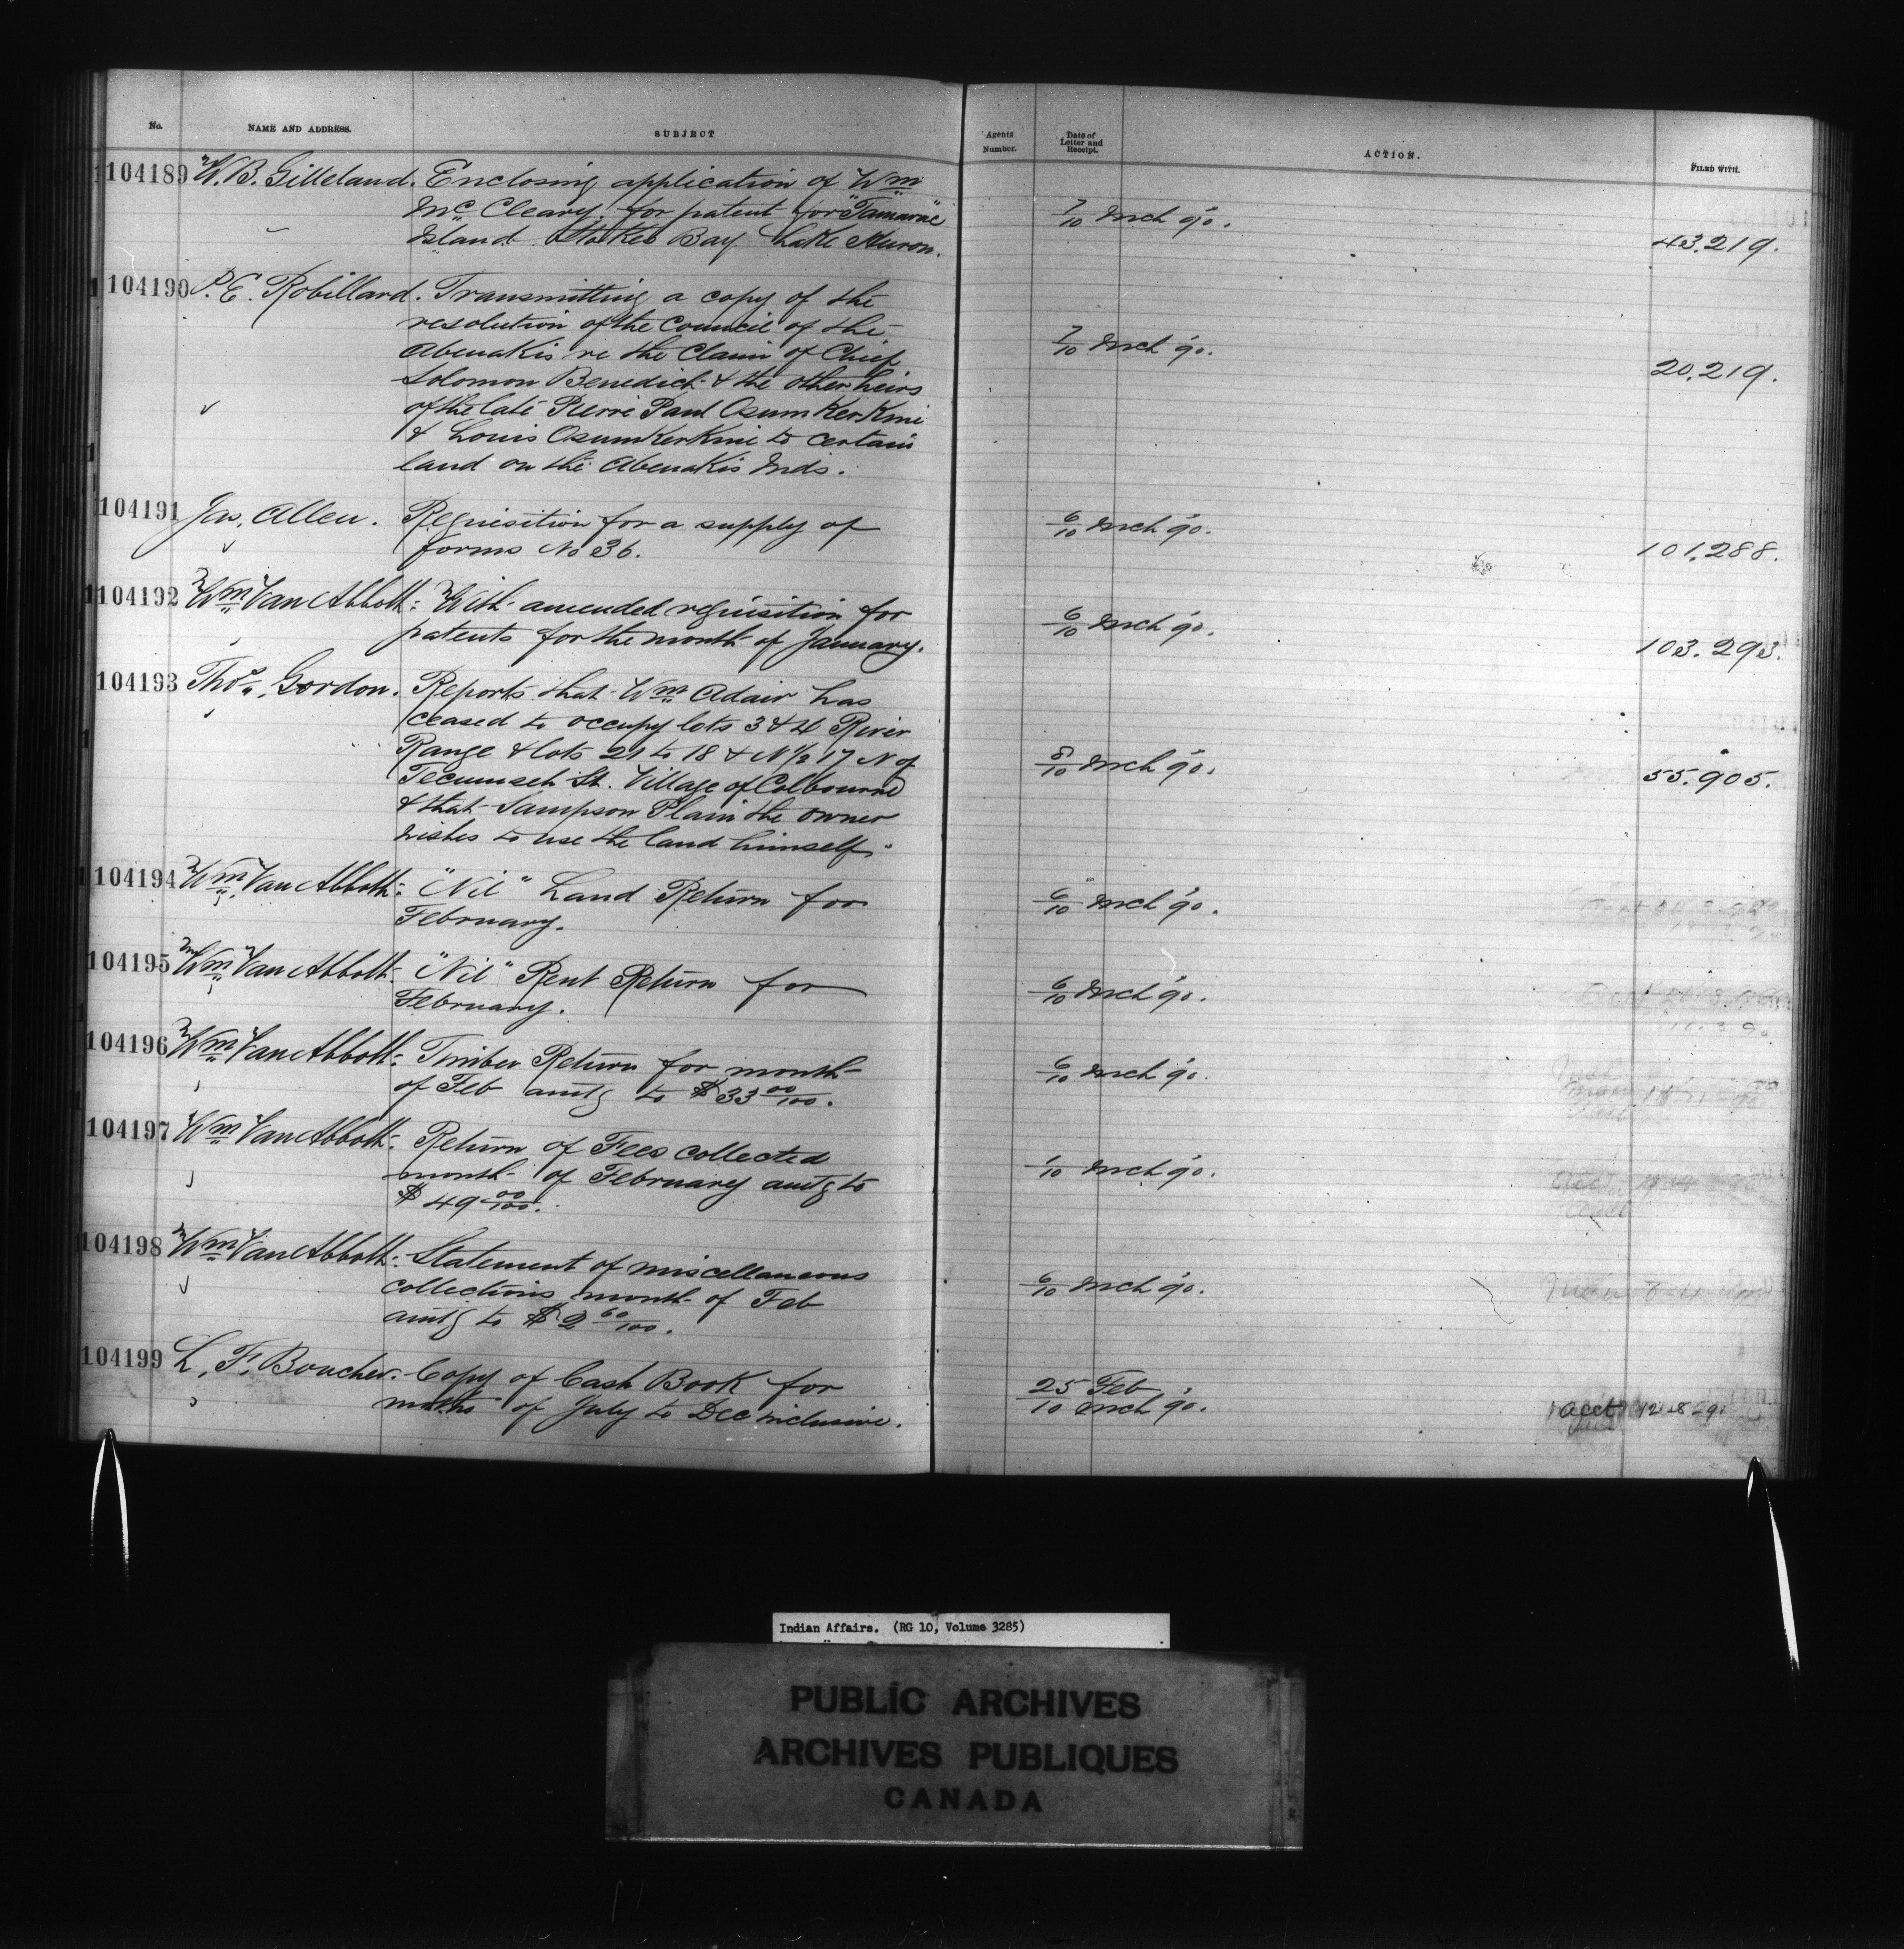 No. NAME AND ADDRESS. SUBJECT Agents Number. Date of Letter and Receipt. ACTION. FILED WITH.
104189 W. B. Gilleland. Enclosing application of Wm
Mc Cleary. for patent for "Tamarac"
Island Stokes Bay Lake Huron. 7/10 Mch '90. 43.219.
104190 P. E. Robillard. Transmitting a copy of the
resolution of the Council of the
Abenakis re the Claim of Chief 7/10 Mch '90.
Solomon Benedict & the other heirs 20.219.
of the late Pierre Paul Osumkerkine
& Louis Osumkerkine to certain
land on the Abenakis Inds.
104191 Jas. Allen. Requisition for a supply of 6/10 Mch '90.
forms No 36. 101.288.
104192 Wm Van Abbott. With amended requisition for 6/10 Mch '90.
patents for the month of January. 103.293.
104193 Thos. Gordon. Reports that Wm Adair has
ceased to occupy lots 3 & 4 River
Range & lots 21 to 18 & N 1/2 17 N of 8/10 Mch '90.
Tecumseh St. Village of Colbourne 55.905.
& that Sampson Plain the owner
wishes to use the land himself.
104194 Wm Van Abbott. "Nil" Land Return for 6/10 Mch '90.
February.
104195 Wm Van Abbott. "Nil" Rent Return for 6/10 Mch '90.
February.
104196 Wm Van Abbott. Timber Return for month 6/10 Mch '90.
of Feb amtg to $33 00/100.
104197 Wm Van Abbott. Return of Fees collected
month of February amtg to /10 Mch '90.
$49 00/100.
104198 Wm Van Abbott. Statement of miscellaneous
collections month of Feb 6/10 Mch '90.
amtg to $2 60/100.
104199 L. F. Boucher. Copy of Cash Book for 25 Feb
months of July to Dec inclusive. 10 Mch '90. Acct
Indian Affairs. (RG 10, Volume 3285)
PUBLIC ARCHIVES
ARCHIVES PUBLIQUES
CANADA